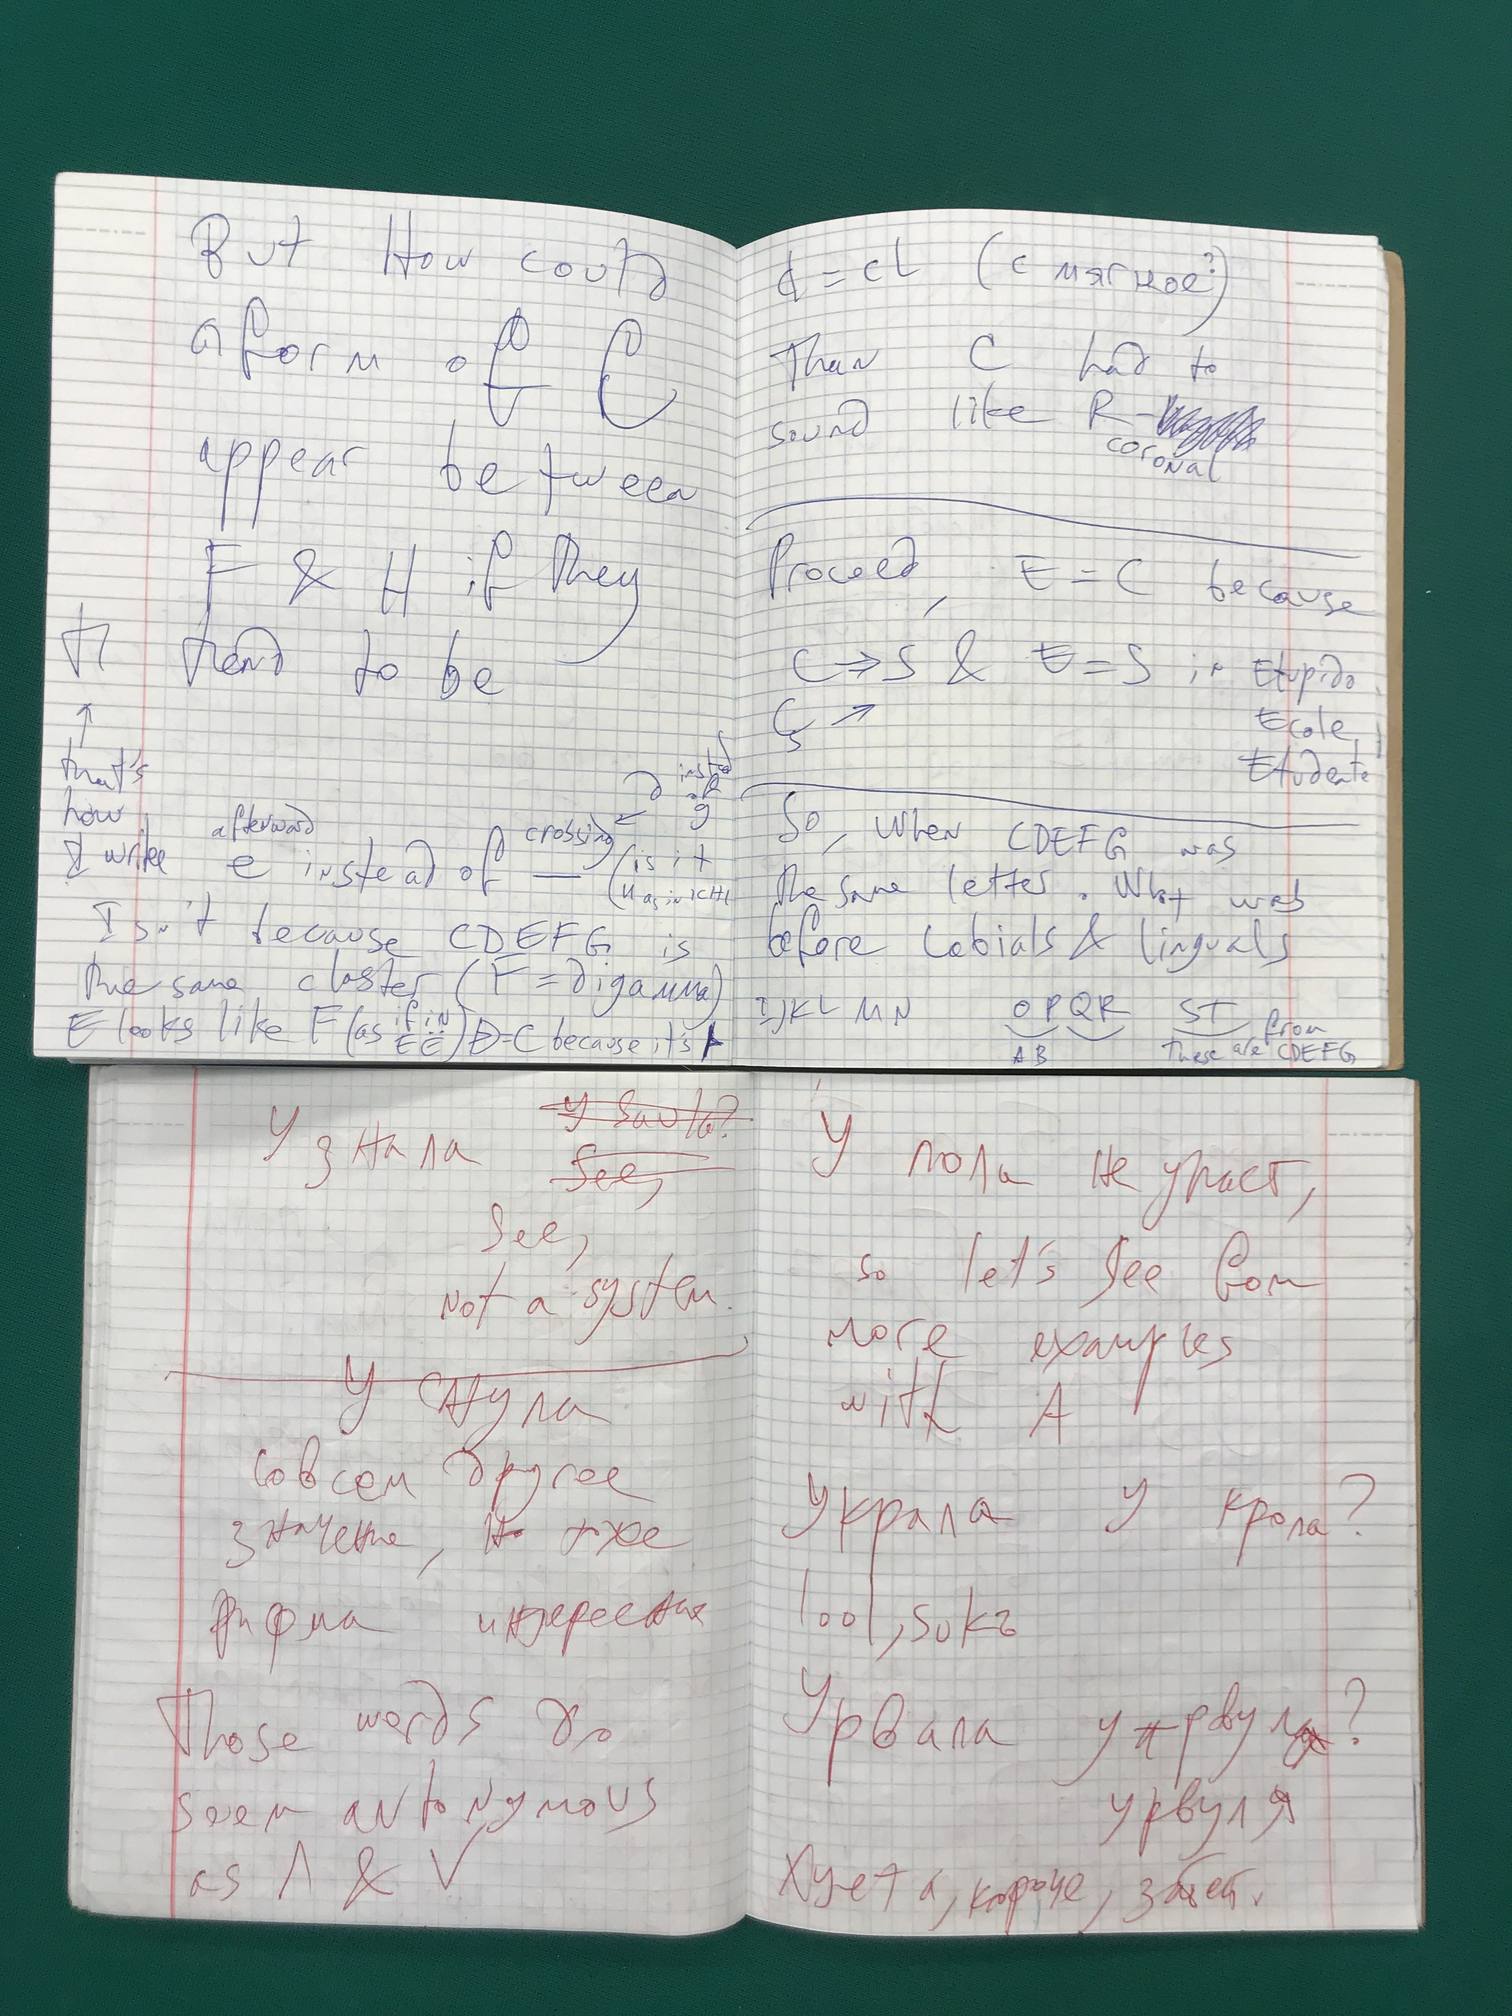 But How could
a form of C
appear between
F & H if they
tend to be
that's
how
I write
afterward
e instead of — crossing
d instead
of
g
(is it
Isn't because CDEFG is
the same cluster (F = digamma)
E looks like F (as if in
d = cL (с мягкое?)
Than C had to
sound like R-
coronal
Proceed, E = C because
C → S & E = S in Etupido
Ç ↗ Ecole,
Etudente
So, when CDEFG was
the same letter. What was
before Labials & linguals
IJKL MN OPQR ST
AB These are from CDEFG
Узнала
See,
not a system.
Уснула
совсем другое
значение, но тоже
рифма интересная
Those words do
seem antonymous
as Λ & V
У пола не украст,
so let's see from
more examples
with A
Украла у крола?
lool, suka
Урвала
урвуля
Хуета, короче,